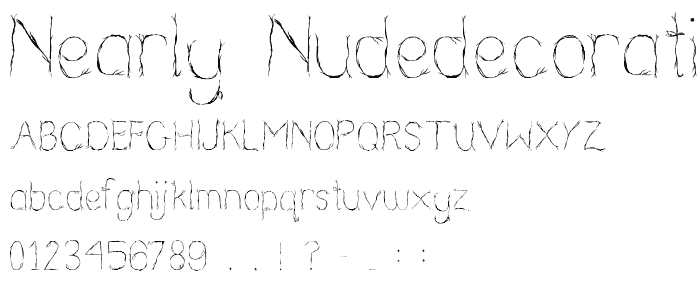 Nearly Nudedecorati
ABCDEFGHIJKLMNOPQRSTUVWXYZ
abcdefghijklmnopqrstuvwxyz
0123456789 . , ! ? - _ : :